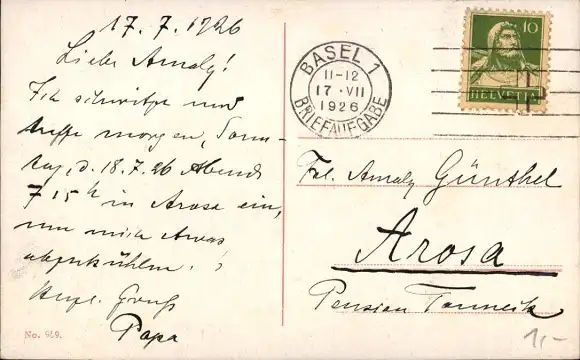 17.7.1926
Liebe Amaly!
Ich schwitze und
treffe morgen, Sonn-
tag, d. 18.7.26 Abends
7 15 h in Arosa ein,
um mich etwas
abzukühlen!
Herzl. Gruß
Papa
No. 959.
BASEL 1
11-12
17·VII
1926
BRIEFAUFGABE
10
HELVETIA
Frl. Amaly Günthel
Arosa
Pension Tanneck
1,-